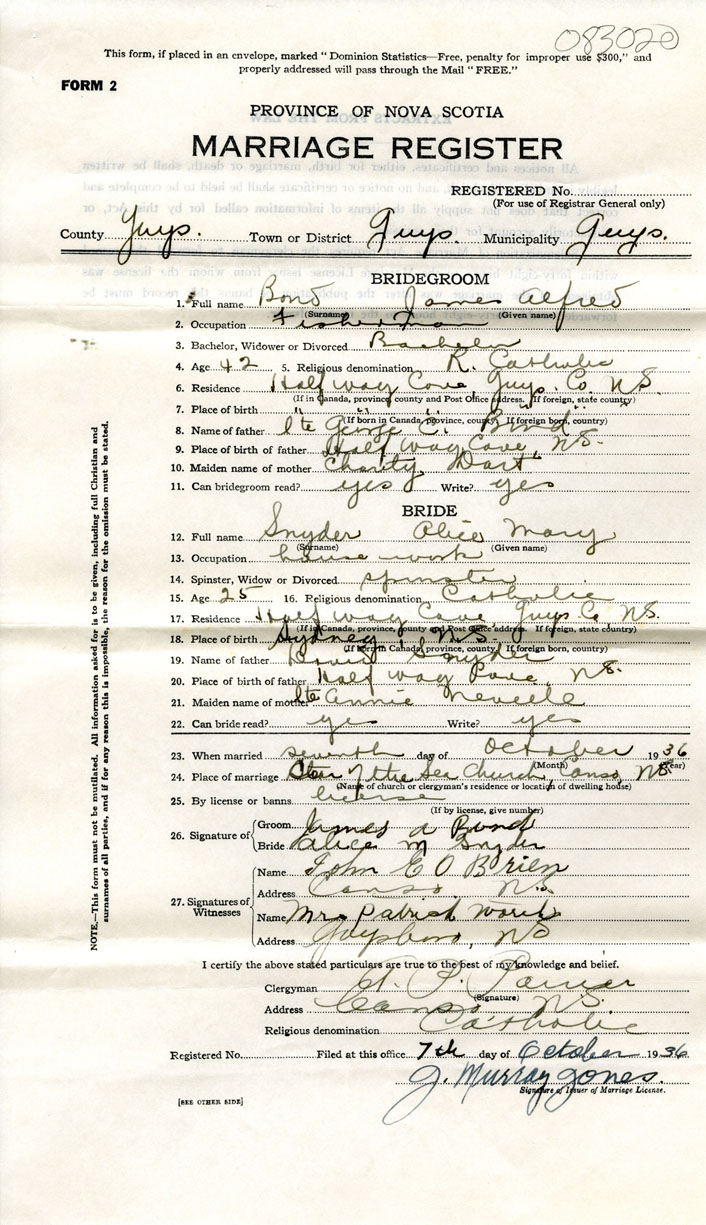 083020
This form, if placed in an envelope, marked "Dominion Statistics—Free, penalty for improper use $300," and
properly addressed will pass through the Mail "FREE."
FORM 2
PROVINCE OF NOVA SCOTIA
MARRIAGE REGISTER
REGISTERED No.
(For use of Registrar General only)
County Guys. Town or District Guys. Municipality Guys.
BRIDEGROOM
1. Full name Bond James Alfred
(Surname) (Given name)
2. Occupation Fisherman
3. Bachelor, Widower or Divorced Bachelor
4. Age 42 5. Religious denomination R. Catholic
6. Residence Half way Cove Guys. Co. NS.
(If in Canada, province county and Post Office address. If foreign, state country)
7. Place of birth " " " " "
(If born in Canada, province, county. If foreign born, country)
8. Name of father lte George C. Bond
9. Place of birth of father Half way Cove, NS.
10. Maiden name of mother Charity Dort
11. Can bridegroom read? yes Write? yes
BRIDE
12. Full name Snyder Alice Mary
(Surname) (Given name)
13. Occupation house work
14. Spinster, Widow or Divorced spinster
15. Age 25 16. Religious denomination Catholic
17. Residence Half way Cove Guys Co, NS.
(If in Canada, province, county and Post Office address. If foreign, state country)
18. Place of birth Sydney N.S.
(If born in Canada, province, county. If foreign born, country)
19. Name of father David Snyder
20. Place of birth of father Half way Cove, NS.
21. Maiden name of mother lte Annie Neville
22. Can bride read? yes Write? yes
23. When married seventh day of October 1936
(Month) (Year)
24. Place of marriage Star of the Sea Church, Canso, NS.
(Name of church or clergyman's residence or location of dwelling house)
25. By license or banns license
(If by license, give number)
26. Signature of Groom James A Bond
Bride Alice M Snyder
27. Signatures of Witnesses Name John E O Brien
Address Canso, NS.
Name Mrs Patrick
Address Guysboro, NS
I certify the above stated particulars are true to the best of my knowledge and belief.
Clergyman
(Signature)
Address Canso NS.
Religious denomination Catholic
Registered No. Filed at this office 7th day of October 1936
J. Murray Jones.
Signature of Issuer of Marriage License.
[SEE OTHER SIDE]
NOTE.—This form must not be mutilated. All information asked for is to be given, including full Christian and
surnames of all parties, and if for any reason this is impossible, the reason for the omission must be stated.